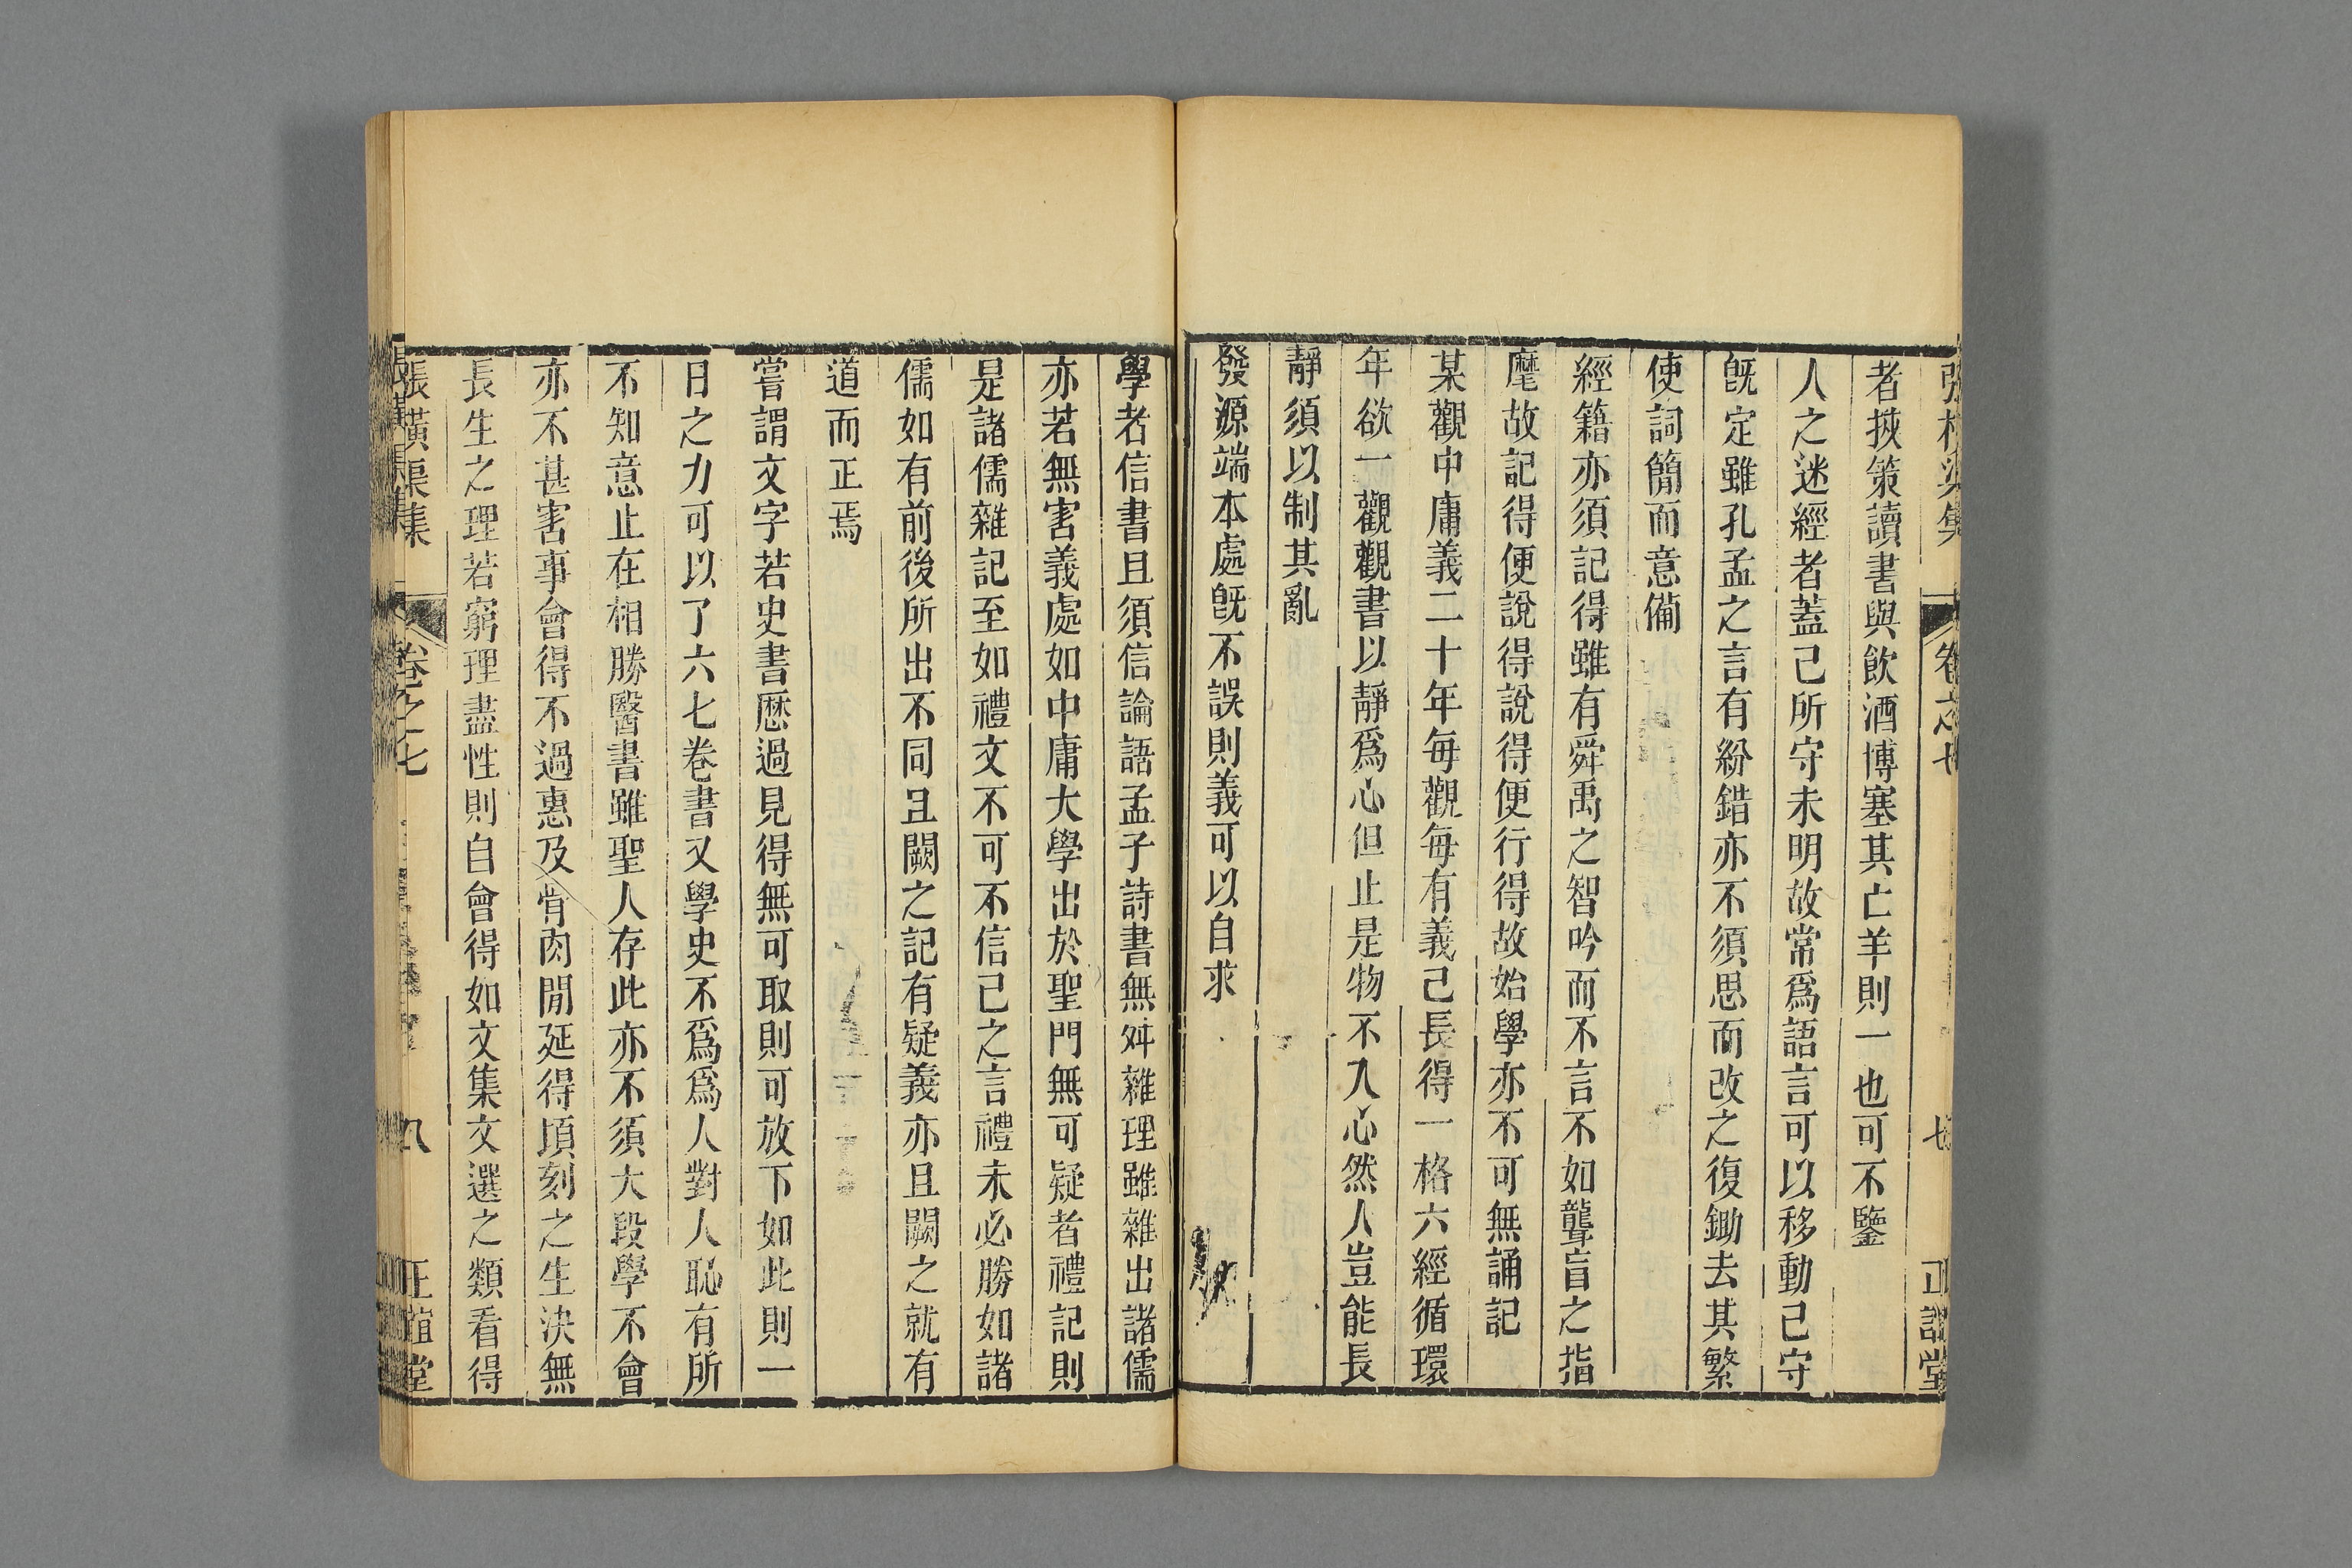 張橫渠集 卷之七 七 正誼堂
者挾策讀書與飲酒博塞其亡羊則一也可不鑒
人之迷經者蓋己所守未明故常爲語言可以移動己守
旣定雖孔孟之言有紛錯亦不須思而改之復鋤去其繁
使詞簡而意備
經籍亦須記得雖有舜禹之智吟而不言不如聾盲之指
麾故記得便說得說得便行得故始學亦不可無誦記
某觀中庸義二十年每觀每有義己長得一格六經循環
年欲一觀觀書以靜爲心但止是物不入心然人豈能長
靜須以制其亂
發源端本處旣不誤則義可以自求
學者信書且須信論語孟子詩書無舛雜理雖雜出諸儒
亦若無害義處如中庸大學出於聖門無可疑者禮記則
是諸儒雜記至如禮文不可不信己之言禮未必勝如諸
儒如有前後所出不同且闕之記有疑義亦且闕之就有
道而正焉
嘗謂文字若史書歷過見得無可取則可放下如此則一
日之力可以了六七卷書又學史不爲爲人對人恥有所
不知意止在相勝醫書雖聖人存此亦不須大段學不會
亦不甚害事會得不過惠及骨肉閒延得頃刻之生決無
長生之理若窮理盡性則自會得如文集文選之類看得
張橫渠集 卷之七 八 正誼堂